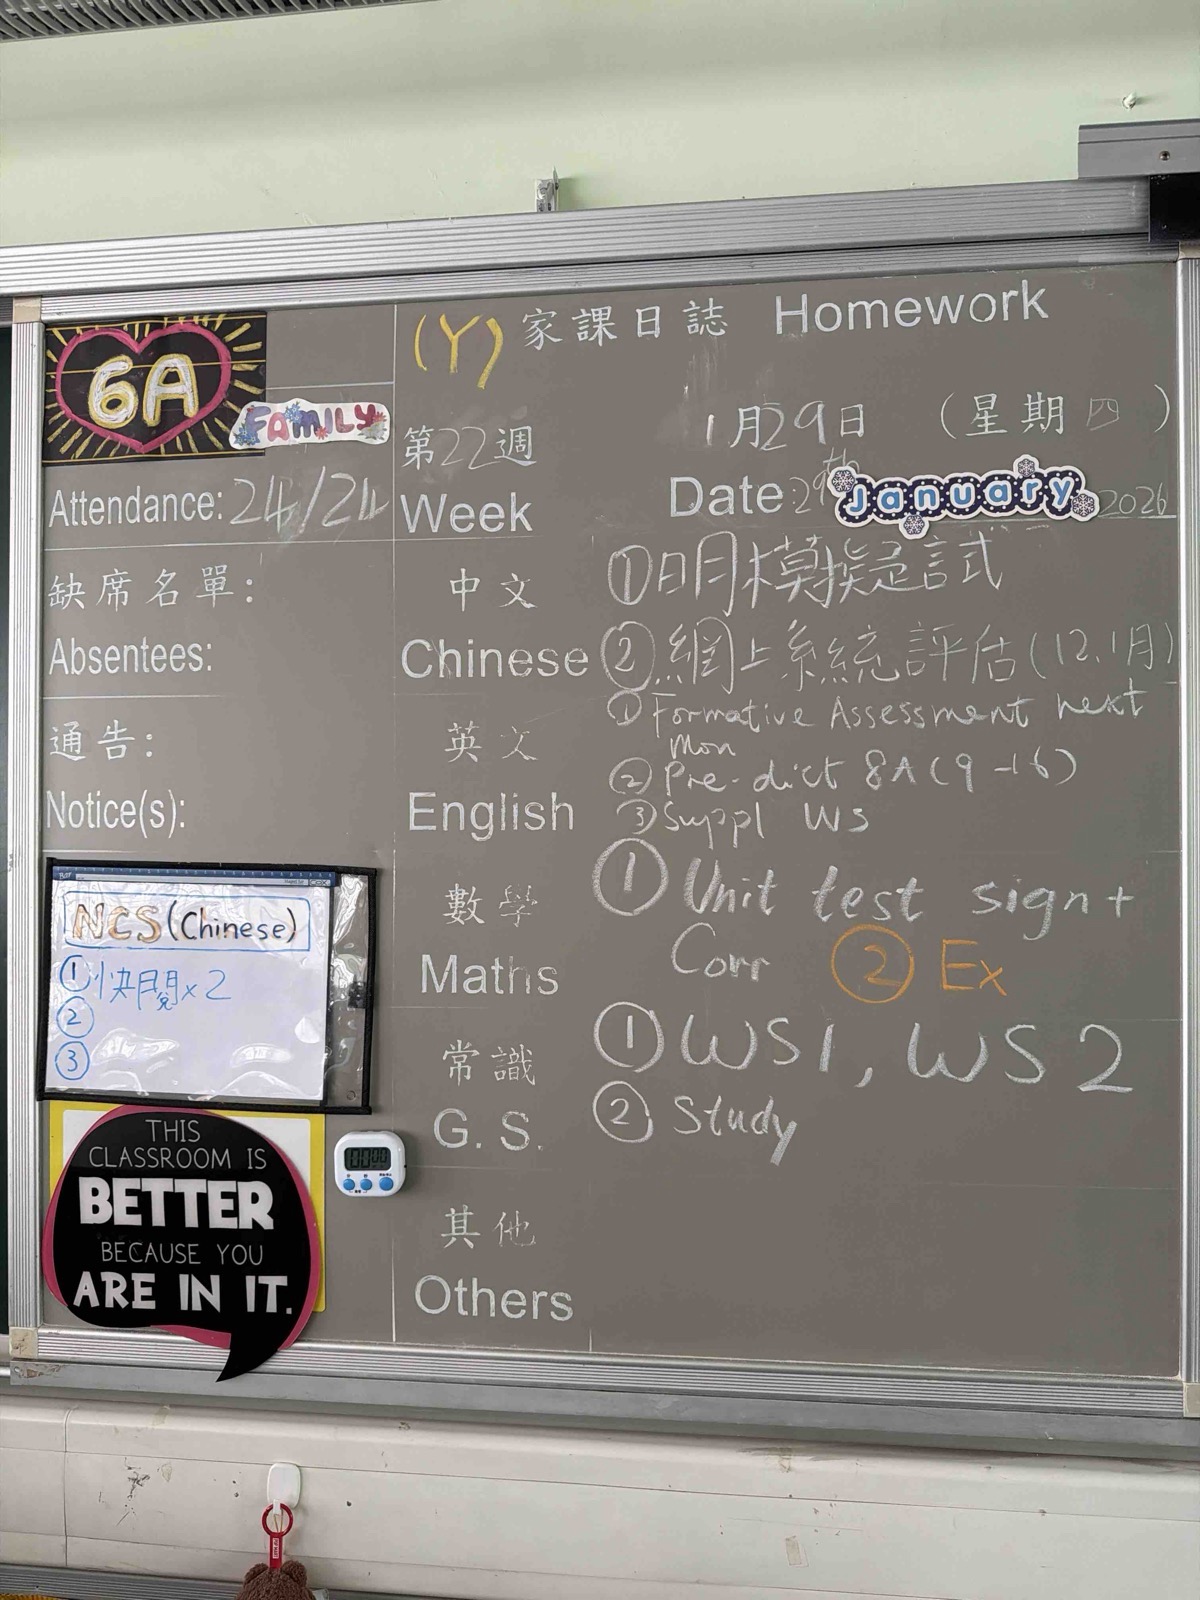 6A
FAMILY
(Y) 家課日誌 Homework
第22週 1月29日 (星期四)
Week Date: 29th January 2026
Attendance: 24/24
缺席名單:
Absentees:
通告:
Notice(s):
NCS (Chinese)
① 快閱x2
②
③
THIS
CLASSROOM IS
BETTER
BECAUSE YOU
ARE IN IT.
中文
Chinese
①日月模擬試
②網上系統評估(12,1月)
英文
English
① Formative Assessment next
Mon
② Pre-dict 8A (9-16)
③ Suppl WS
數學
Maths
① Unit test sign+
Corr ② Ex
常識
G. S.
① WS1, WS2
② Study
其他
Others